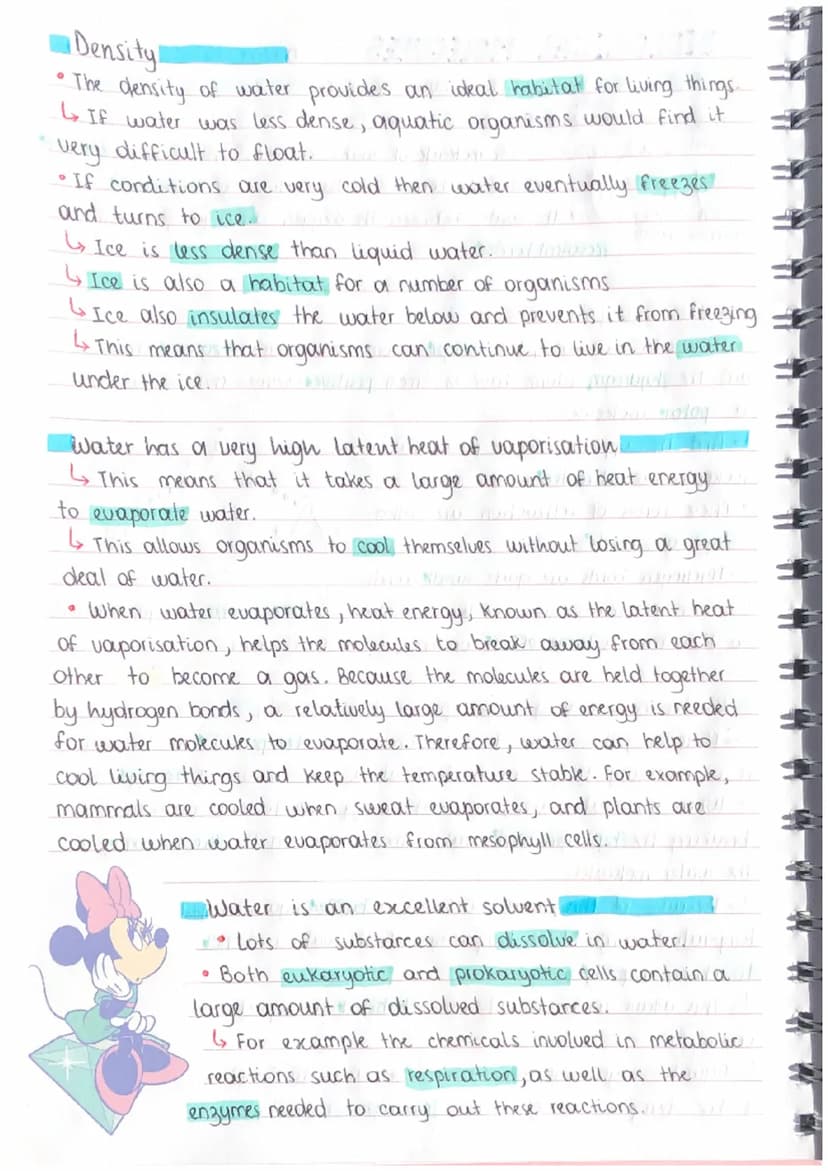 Density
• The density of water provides an ideal habitat for living things.
↳ If water was less dense, aquatic organisms would find it
very difficult to float.
• If conditions are very cold then water eventually freezes
and turns to ice.
↳ Ice is less dense than liquid water.
↳ Ice is also a habitat for a number of organisms
↳ Ice also insulates the water below and prevents it from freezing
↳ This means that organisms can continue to live in the water
under the ice.
Water has a very high latent heat of vaporisation
↳ This means that it takes a large amount of heat energy
to evaporate water.
↳ This allows organisms to cool themselves without losing a great
deal of water.
• When water evaporates, heat energy, known as the latent heat
of vaporisation, helps the molecules to break away from each
other to become a gas. Because the molecules are held together
by hydrogen bonds, a relatively large amount of energy is needed
for water molecules to evaporate. Therefore, water can help to
cool living things and keep the temperature stable. For example,
mammals are cooled when sweat evaporates, and plants are
cooled when water evaporates from mesophyll cells.
Water is an excellent solvent
• Lots of substances can dissolve in water.
• Both eukaryotic and prokaryotic cells contain a
large amount of dissolved substances.
↳ For example the chemicals involved in metabolic
reactions such as respiration, as well as the
enzymes needed to carry out these reactions.